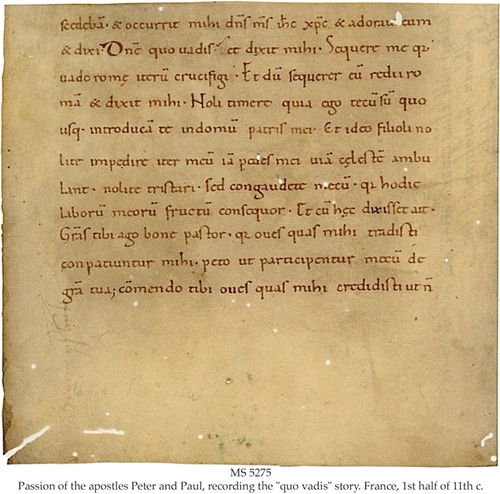 secdebā· & occurrit mihi dn̄s m̄s ih̄c xp̄c & adoravi eum
& dixi· Dn̄e quo vadis· et dixit mihi· Sequere me qr
vado romę iterū crucifigi· Et dū sequerer eū redii ro
mā & dixit mihi· Noli timere quia ego tecū sū quo
usq· introducā te indomū patris mei· Et ideo filioli no
lite impedire iter meū iā pedes mei viā cęlestē ambu
lant· nolite tristari· sed congaudete mecū· qr hodie
laborū meorū fructū consequor· Et cū hęc dixisset ait·
Gr̄as tibi ago bone pastor· qr oves quas mihi tradisti
conpatiuntur mihi· peto ut participentur mecū de
gr̄a tua; cōmendo tibi oves quas mihi credidisti ut n̄
MS 5275
Passion of the apostles Peter and Paul, recording the "quo vadis" story. France, 1st half of 11th c.